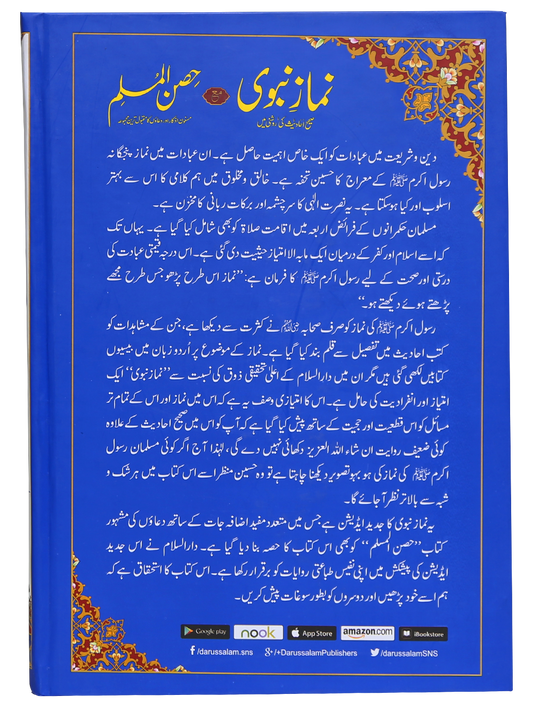 نماز نبوی مع حصن المسلم
صحیح احادیث کی روشنی میں
مسنون اذکار اور دعاؤں کا مقبول ترین مجموعہ
دین و شریعت میں عبادات کو ایک خاص اہمیت حاصل ہے۔ ان عبادات میں نماز پنجگانہ
رسول اکرم ﷺ کے معراج کا حسین تحفہ ہے۔ خالق و مخلوق میں ہم کلامی کا اس سے بہتر
اسلوب اور کیا ہوسکتا ہے۔ یہ نصرت الٰہی کا سرچشمہ اور برکات ربانی کا مخزن ہے۔
مسلمان حکمرانوں کے فرائض اربعہ میں اقامت صلاۃ کو بھی شامل کیا گیا ہے۔ یہاں تک
کہ اسے اسلام اور کفر کے درمیان ایک مابہ الامتیاز حیثیت دی گئی ہے۔ اس درجہ قیمتی عبادت کی
درستی اور صحت کے لیے رسول اکرم ﷺ کا فرمان ہے: ’’نماز اس طرح پڑھو جس طرح مجھے
پڑھتے ہوئے دیکھتے ہو۔‘‘
رسول اکرم ﷺ کی نماز کو صرف صحابہ رضی اللہ عنہم نے کثرت سے دیکھا ہے، جن کے مشاہدات کو
کتب احادیث میں تفصیل سے قلم بند کیا گیا ہے۔ نماز کے موضوع پر اُردو زبان میں بیسیوں
کتابیں لکھی گئی ہیں مگر ان میں دارالسلام کے اعلیٰ تحقیقی ذوق کی نسبت سے ’’نماز نبوی‘‘ ایک
امتیاز اور انفرادیت کی حامل ہے۔ اس کا امتیازی وصف یہ ہے کہ اس میں نماز اور اس کے تمام تر
مسائل کو اس قطعیت اور حجیت کے ساتھ پیش کیا گیا ہے کہ آپ کو اس میں صحیح احادیث کے علاوہ
کوئی ضعیف روایت ان شاء اللہ العزیز دکھائی نہیں دے گی، لہٰذا آج اگر کوئی مسلمان رسول
اکرم ﷺ کی نماز کی ہو بہو تصویر دیکھنا چاہتا ہے تو وہ حسین منظر اسے اس کتاب میں ہر شک و
شبہ سے بالاتر نظر آجائے گا۔
یہ نماز نبوی کا جدید ایڈیشن ہے جس میں متعدد مفید اضافہ جات کے ساتھ دعاؤں کی مشہور
کتاب ’’حصن المسلم‘‘ کو بھی اس کتاب کا حصہ بنا دیا گیا ہے۔ دارالسلام نے اس جدید
ایڈیشن کی پیشکش میں اپنی نفیس طباعتی روایات کو برقرار رکھا ہے۔ اس کتاب کا استحقاق ہے کہ
ہم اسے خود پڑھیں اور دوسروں کو بطور سوغات پیش کریں۔
Google play nook App Store amazon.com iBookstore
/darussalam.sns g+/+DarussalamPublishers /darussalamSNS